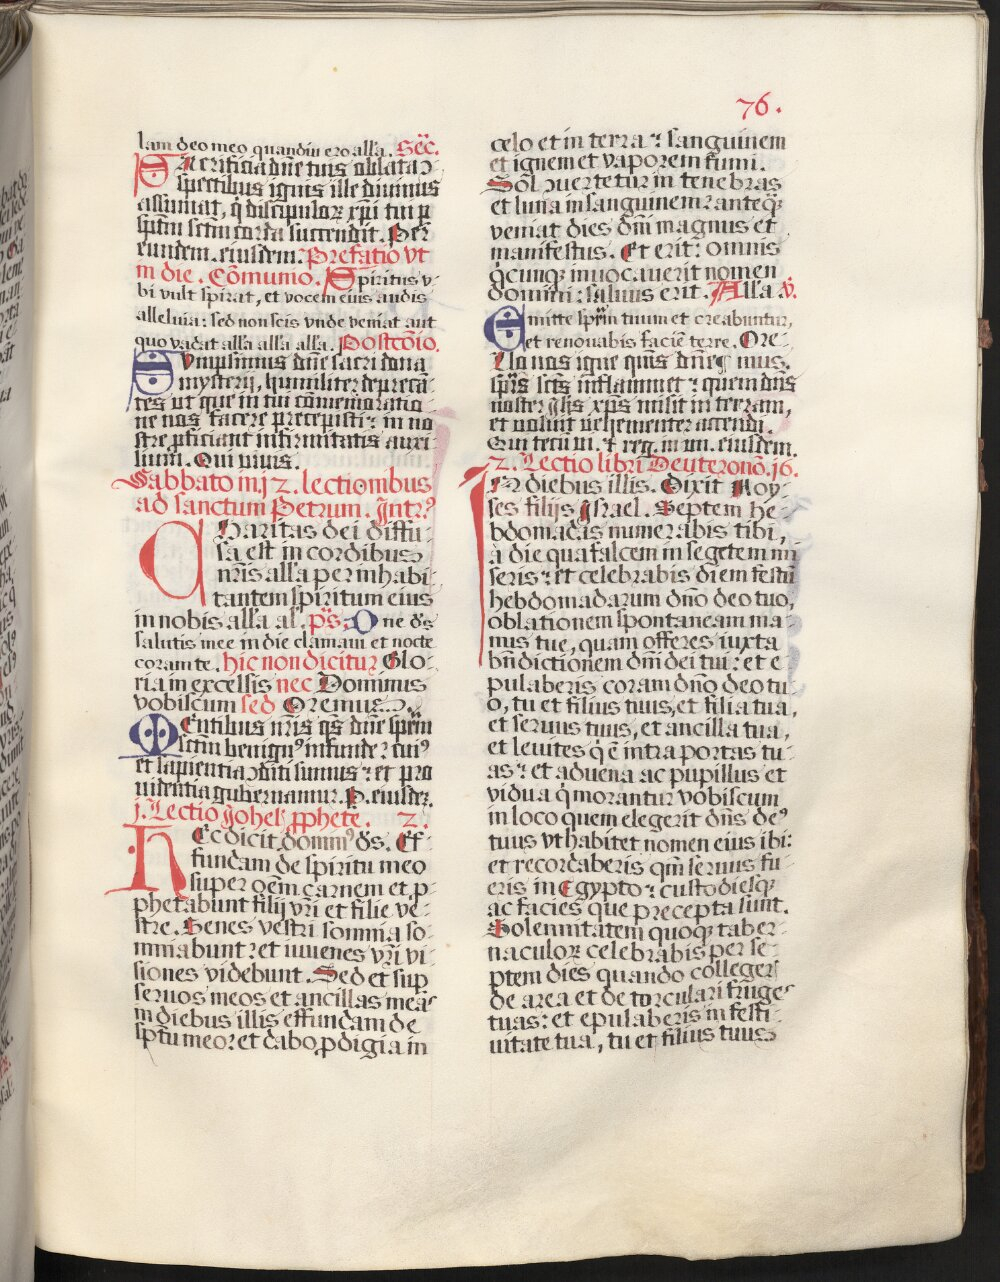 76.
lam deo meo quandiu ero all'a. Sec̄.
Sacrificia dn̄e tuis oblata ↄ-
spectibus ignis ille diuinus
assumat, q̇ discipuloꝝ xp̄i tui ꝑ
sp̄m sctm̄ corda succendit. Per
eundem. eiusdem. Prefatio vt
in die. Cōmunio. Spiritus v-
bi vult spirat, et vocem eius audis
alleluia: sed non scis vnde veniat aut
quo vadat all'a all'a all'a. Postcōio.
Sumpsimus dn̄e sacri dona
mysterij, humiliter deprecā-
tes ut que in tui cōmemoratio-
ne nos facere precepisti: in no-
stre ꝓficiant infirmitatis auxi-
lium. Qui viuis.
Sabbato in j2. lectionibus
ad sanctum Petrum. Intr̄.
Caritas dei diffu-
sa est in cordibus
nr̄is all'a per inhabi-
tantem spiritum eius
in nobis all'a al'. p̄s. Dne ds̄
salutis mee in die clamaui et nocte
coram te. hic non dicitur Glo-
ria in excelsis nec Dominus
vobiscum sed Oremus.
Mentibus nr̄is qs̄ dn̄e sp̄m
sctm̄ benignꝰ infunde: cuiꝰ
et sapientia ↄditi sumus: et pro
uidentia gubernamur. P. eiusdeꝫ.
j. Lectio Johel' ꝓphete. 2.
Hec dicit dominꝰ ds̄. Ef-
fundam de spiritu meo
super oēm carnem et ꝓ-
phetabunt filij vr̄i et filie ve-
stre. Senes vestri somnia so-
mniabunt: et iuuenes vr̄i vi-
siones videbunt. Sed et sup
seruos meos et ancillas meas
in diebus illis effundam de
sp̄tu meo: et dabo ꝓdigia in
celo et in terra: sanguinem
et ignem et vaporem fumi.
Sol ↄuertetur in tenebras
et luna in sanguinem: anteq̄ꝫ
veniat dies dn̄i magnus et
manifestus. Et erit: omnis
q̇cunqꝫ inuocauerit nomen
domini: saluus erit. All'a. v̄.
Emitte sp̄m tuum et creabuntur,
et renouabis faciē terre. Ore-
Illo nos igne qs̄ dn̄e ¶ mus.
sp̄s sctūs inflammet: quem dn̄s
noster ih̄s xp̄s misit in terram,
et voluit vehementer accendi.
Qui tecū ui. ⁊ reg. in un. eiusdem.
2. Lectio libri Deuteronō. j6.
In diebus illis. Dixit Moy-
ses filijs Israel. Septem he-
bdomadas numerabis tibi,
à die qua falcem in segetem mi
seris: et celebrabis diem festū
hebdomadarum dn̄o deo tuo,
oblationem spontaneam ma-
nus tue, quam offeres iuxta
bn̄dictionem dn̄i dei tui: et e-
pulaberis coram dn̄o deo tu-
o, tu et filius tuus, et filia tua,
et seruus tuus, et ancilla tua,
et leuites q̇ ē intra portas tu-
as: et aduena ac pupillus et
vidua q̇ morantur vobiscum
in loco quem elegerit dn̄s deꝰ
tuus vt habitet nomen eius ibi:
et recordaberis qm̄ seruus fu-
eris in Egypto: custodiesqꝫ
ac facies que precepta sunt.
Solemnitatem quoqꝫ taber-
naculoꝝ celebrabis per se-
ptem dies quando collegeris
de area et de torculari fruges
tuas: et epulaberis in festi-
uitate tua, tu et filius tuus